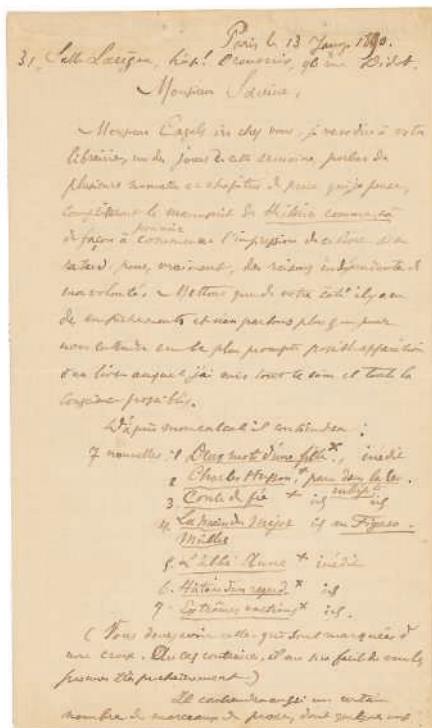 Paris le 13 Janv. 1890.
31, Salle Lasègue, hôpl Broussais, rue Didot.
Monsieur Savine,
Monsieur Cazals ira chez vous, je vous dis à votre
librairie, un des jours de cette semaine, porteur de
plusieurs nouvelles et chapitres de prose qui, je pense,
complèteront le manuscrit de Histoires comme ça
de façon à pouvoir commencer l'impression de ce livre
retard, pour, vraiment, des raisons indépendantes de
ma volonté. Mettons que de votre côté il y a eu
des empêchements et n'en parlons plus que pour
nous entendre sur la plus prompte possible apparition
d'un livre auquel j'ai mis tout le soin et toute la
conscience possibles.
D'après mon calcul il contiendra :
7 nouvelles : 1 Deux mots d'une fille x, inédit
2 Charles Husson, x paru dans la
3. Conte de fée x id id
4. La main du Major id au Figaro.
5. L'abbé Anne x inédit
6. Histoire d'un regard x id
7. Extrêmes onctions x id.
( Vous devez avoir celles qui sont marquées d'
une croix. Au cas contraire, il me sera facile de
prochainement.)
Il contiendra aussi un certain
nombre de morceaux de prose, dont quelques uns